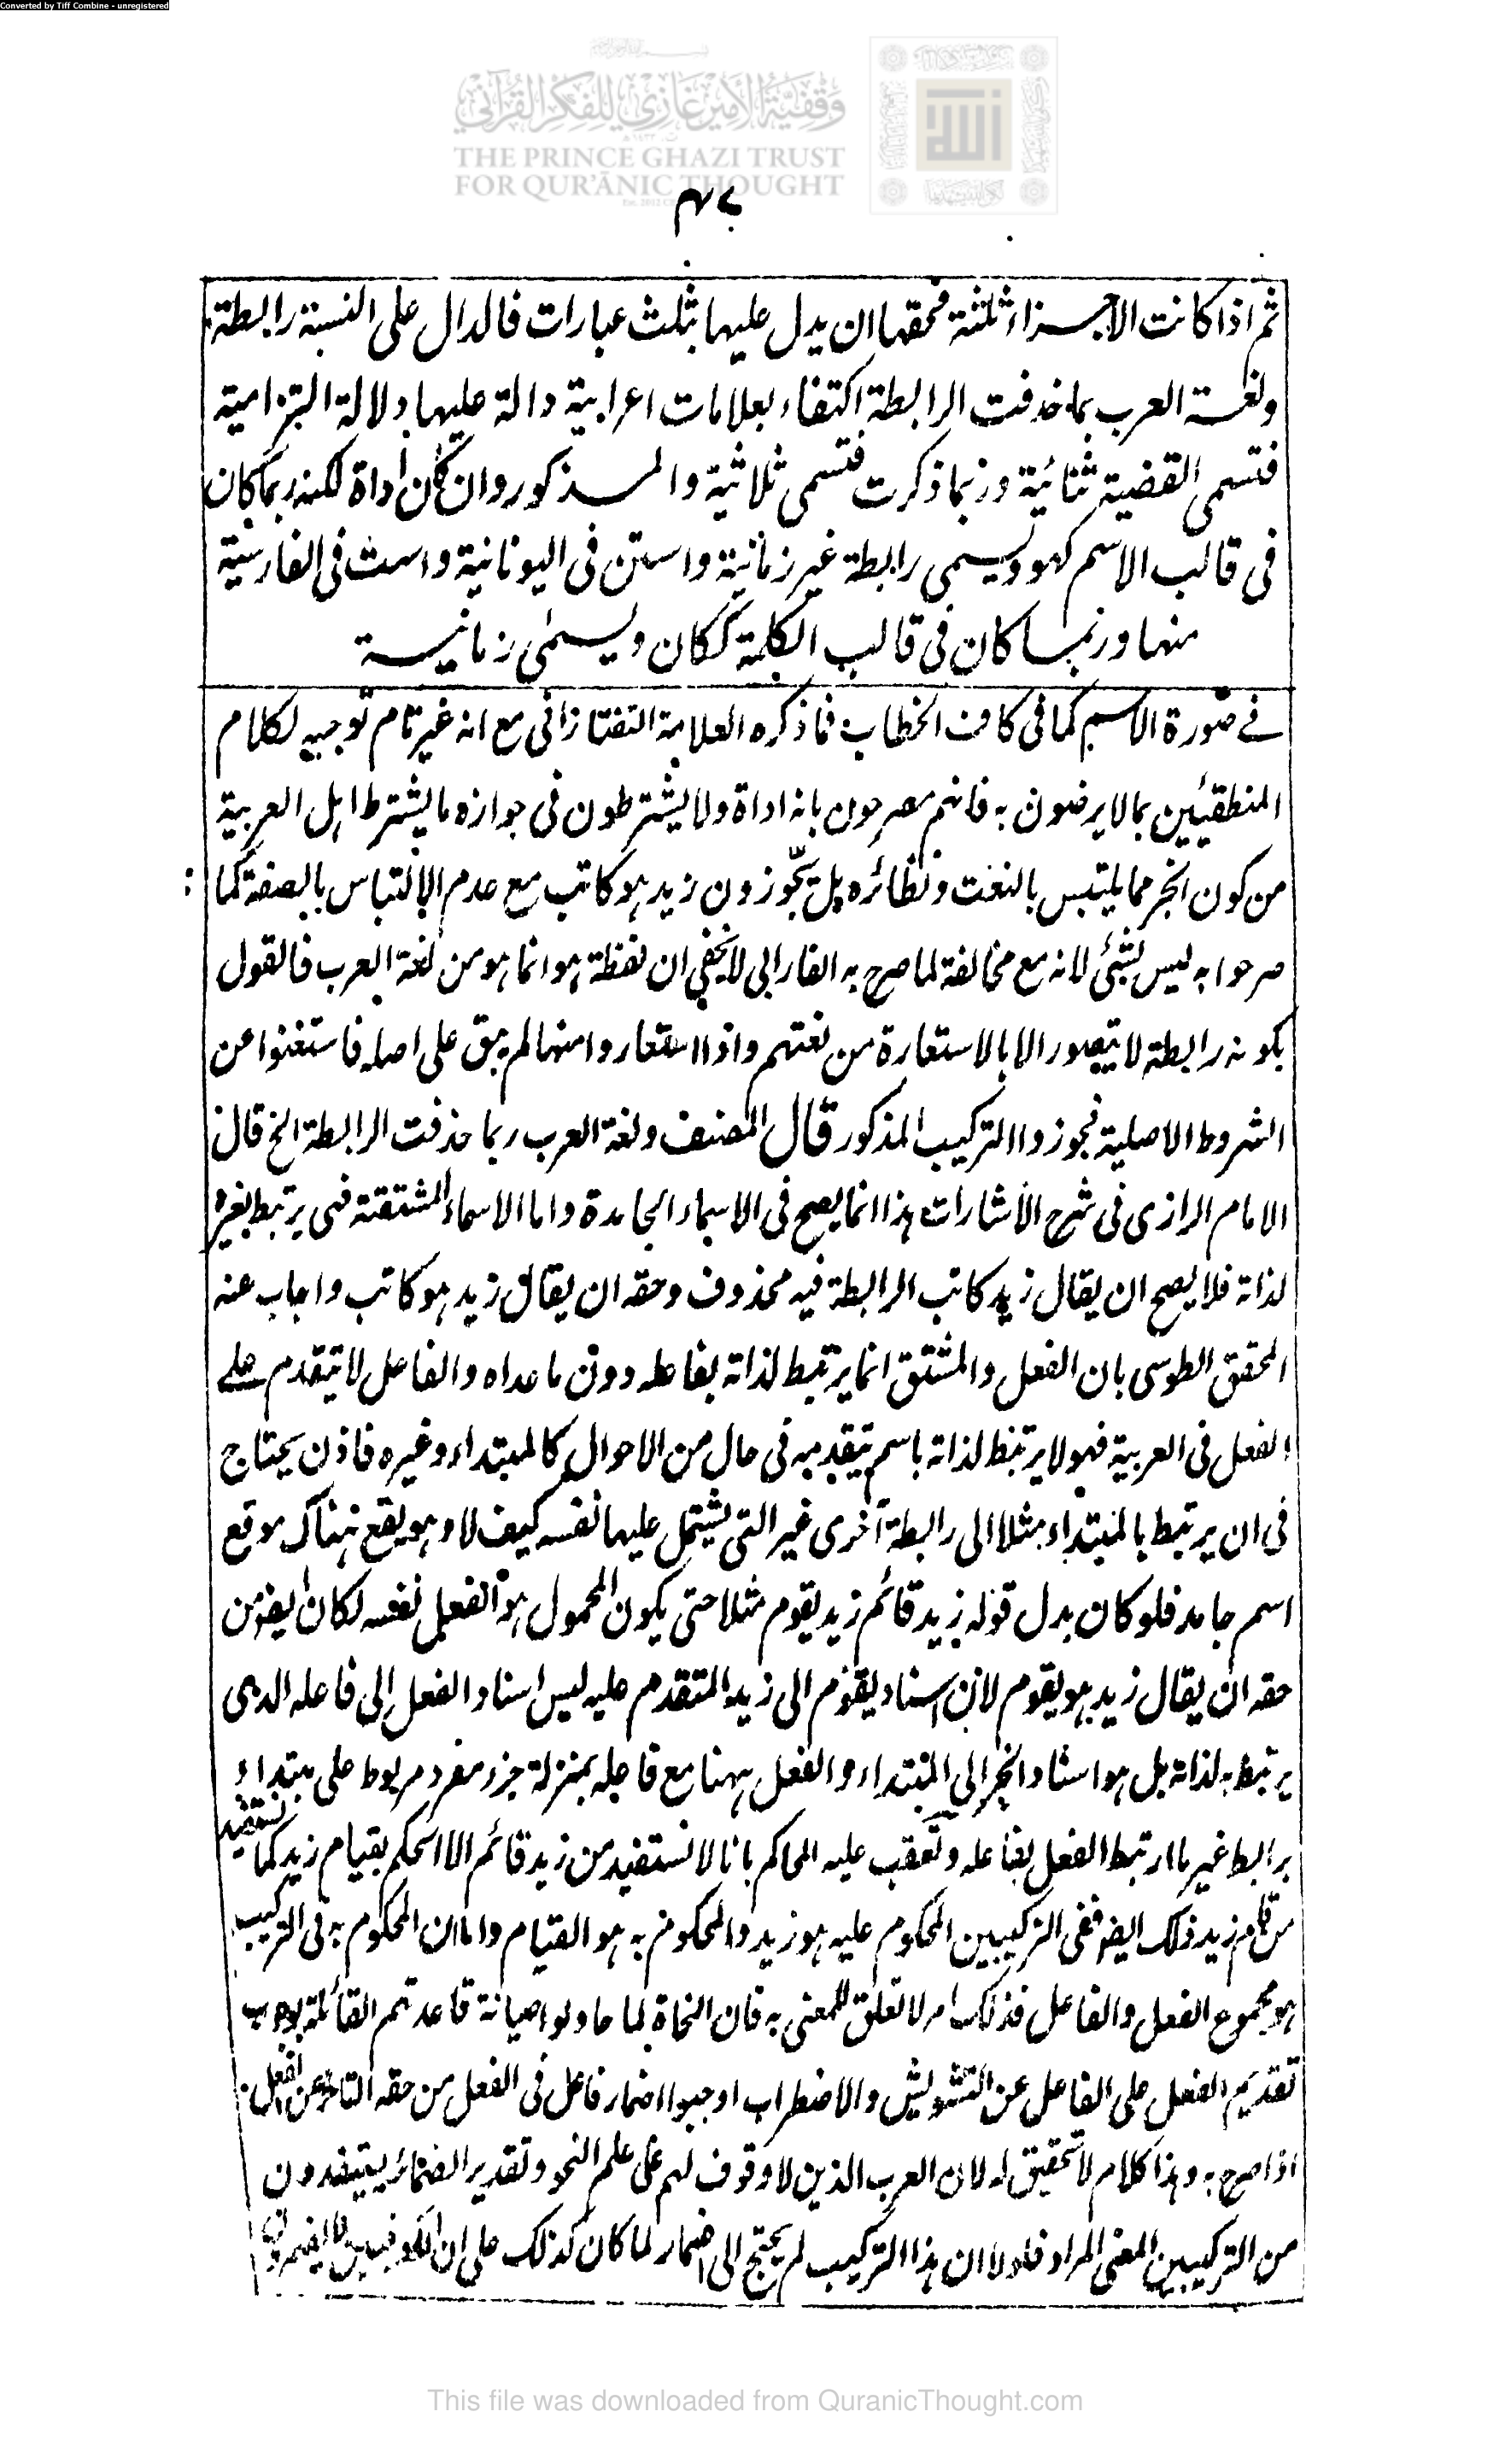 Converted by Tiff Combine - unregistered
وقفية الأمير غازي للفكر القرآني
THE PRINCE GHAZI TRUST
FOR QUR'ĀNIC THOUGHT
ثم اذا كانت الاجزاء ثلثة فحقها ان يدل عليها بثلث عبارات فالدال على النسبة رابطة
ولغة العرب ربما حذفت الرابطة اكتفاء بعلامات اعرابية دالة عليها دلالة التزامية
فتسمى القضية ثنائية وربما ذكرت فتسمى ثلاثية والمذكور وان كان اداة لكنه ربما كان
فى قالب الاسم كهو ويسمى رابطة غير زمانية واستن فى اليونانية واست فى الفارسية
منها وربما كان فى قالب الكلمة ككان ويسمى زمانية
فے صورة الاسم كما فى كاف الخطاب فما ذكره العلامة التفتازانى مع انه غير تام توجيه لكلام
المنطقيين بما لا يرضون به فانهم مصرحون بانه اداة ولا يشترطون فى جوازه ما يشترط اهل العربية
من كون الخبر مما يلتبس بالنعت ونظائره بل يجوزون زيد هو كاتب مع عدم الالتباس بالصفة كما
صرحوا به ليس بشئ لانه مع مخالفة لما صرح به الفارابى لا يخفى ان لفظة هو انما هو من لغة العرب فالقول
بكونه رابطة لا يتصور الا بالاستعارة من لغتهم واذا استعاروا منها لم يبق على اصله فاستغنوا عن
الشروط الاصلية فجوزوا التركيب المذكور قال المصنف ولغة العرب ربما حذفت الرابطة الخ قال
الامام الرازى فى شرح الاشارات هذا انما يصح فى الاسماء الجامدة واما الاسماء المشتقة فهى يرتبط بغيره
لذاته فلا يصح ان يقال زيد كاتب الرابطة فيه محذوف وحقه ان يقال زيد هو كاتب واجاب عنه
المحقق الطوسى بان الفعل والمشتق انما يرتبط لذاته بفاعله دون ما عداه والفاعل لا يتقدم علے
الفعل فى العربية فهو لا يرتبط لذاته باسم يتقدمه فى حال من الاحوال كالمبتداء وغيره فاذن يحتاج
فى ان يرتبط بالمبتداء مثلا الى رابطة اخرى غير التى يشتمل عليها نفسه كيف لا وهو يقع هناك موقع
اسم جامد فلو كان بدل قوله زيد قائم زيد يقوم مثلا حتى يكون المحمول هو الفعل نفسه لكان ايضا من
حقه ان يقال زيد هو يقوم لان اسناد يقوم الى زيد المتقدم عليه ليس اسناد الفعل الى فاعله الذى
يرتبط به لذاته بل هو اسناد الخبر الى المبتداء والفعل ههنا مع فاعله بمنزلة جزء مفرد مربوط على مبتداء
برابط غير ما ارتبط الفعل بفاعله وتعقب عليه المحاكم بانا لا نستفيد من زيد قائم الا الحكم بقيام زيد كما نستفيد
من قام زيد ذلك ايضا ففى التركيبين المحكوم عليه هو زيد والمحكوم به هو القيام واما ان المحكوم به فى التركيب
هو مجموع الفعل والفاعل فذلك امر لا تعلق للمعنى به فان النحاة لما حاولوا صيانة قاعدتهم القائلة بوجوب
تقديم الفعل على الفاعل عن التشويش والاضطراب اوجبوا اضمار فاعل فى الفعل من حقه التاخر عن الفعل
اذا صرح به وهذا كلام لا تحقيق له لان العرب الذين لا وقوف لهم على علم النحو وتقدير الضمائر يستفيدون
من التركيبين المعنى المراد فلولا ان هذا التركيب لم يحتج الى اضمار لما كان كذلك على ان الكوفيين
This file was downloaded from QuranicThought.com